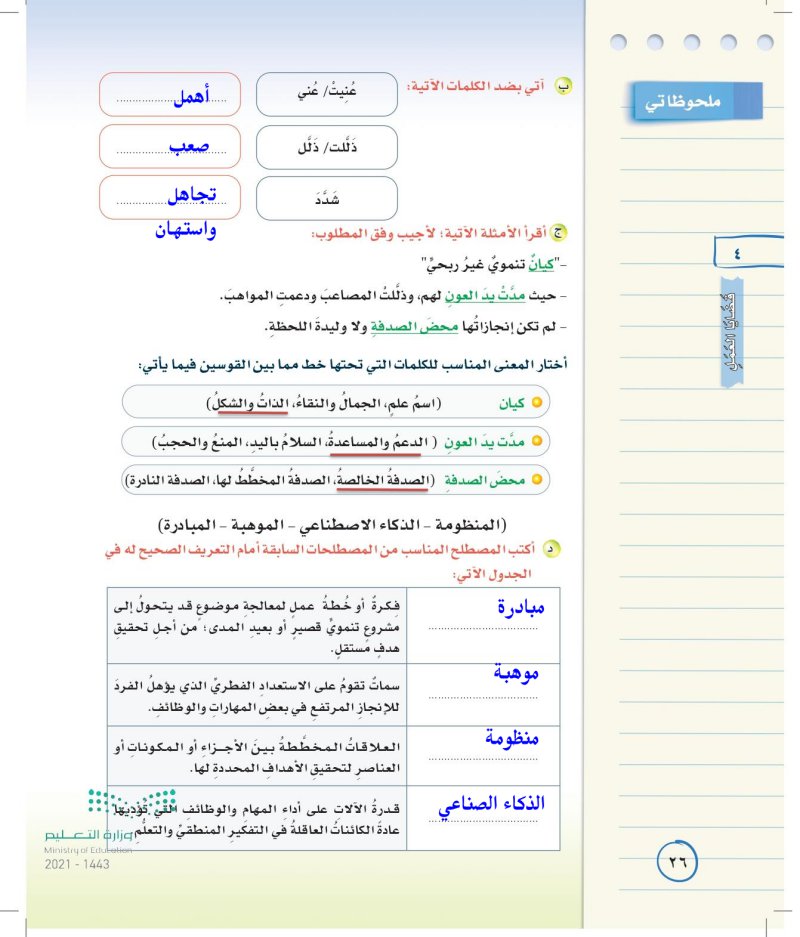 ملحوظاتي
٤
قضايا العمل
ب آتي بضد الكلمات الآتية:
عُنِيتْ/ عُني
أهمل
ذَلَّلت/ ذَلَّل
صعب
شَدَّدَ
تجاهل
واستهان
ج أقرأ الأمثلة الآتية؛ لأجيب وفق المطلوب:
-"كيانٌ تنمويٌ غيرُ ربحيٍّ"
- حيث مدَّتْ يدَ العونِ لهم، وذلَّلتْ المصاعبَ ودعمتِ المواهبَ.
- لم تكن إنجازاتُها محضَ الصدفةِ ولا وليدةَ اللحظةِ.
أختار المعنى المناسب للكلمات التي تحتها خط مما بين القوسين فيما يأتي:
كيان (اسمُ علمٍ، الجمالُ والنقاءُ، الذاتُ والشكلُ)
مدَّت يدَ العونِ ( الدعمُ والمساعدةُ، السلامُ باليدِ، المنعُ والحجبُ)
محضَ الصدفةِ (الصدفةُ الخالصةُ، الصدفةُ المخطَّطُ لها، الصدفة النادرة)
(المنظومة – الذكاء الاصطناعي – الموهبة – المبادرة)
د أكتب المصطلح المناسب من المصطلحات السابقة أمام التعريف الصحيح له في
الجدول الآتي:
مبادرة
فِكرةٌ أو خُطةُ عملٍ لمعالجةِ موضوعٍ قد يتحولُ إلى
مشروعٍ تنمويٍّ قصيرٍ أو بعيدِ المدى؛ من أجلِ تحقيقِ
هدفٍ مستقلٍ.
موهبة
سماتٌ تقومُ على الاستعدادِ الفطريِّ الذي يؤهلُ الفردَ
للإنجازِ المرتفعِ في بعضِ المهاراتِ والوظائفِ.
منظومة
العلاقاتُ المخطَّطةُ بينَ الأجزاءِ أو المكوناتِ أو
العناصرِ لتحقيقِ الأهدافِ المحددةِ لها.
الذكاء الصناعي
قدرةُ الآلاتِ على أداءِ المهامِ والوظائفِ التي تُؤديها
عادةً الكائناتُ العاقلةُ في التفكيرِ المنطقيِّ والتعلُّمِ
وزارة التعليم
Ministry of Education
2021 - 1443
٢٦